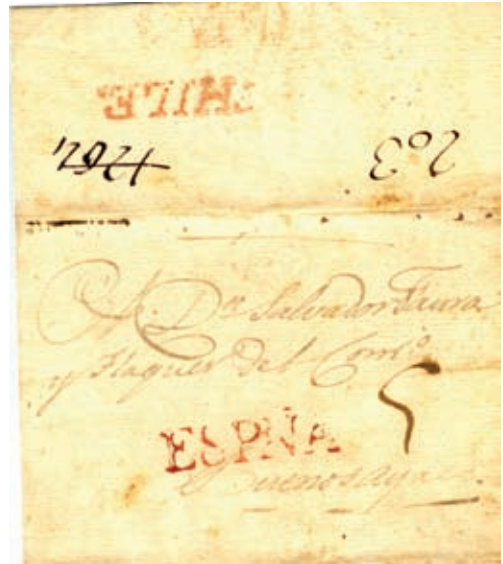 CHILE
1262
203
A Dn Salvador Feura
y Flaquer del Comcio
5
ESPÑA
Buenos ayres